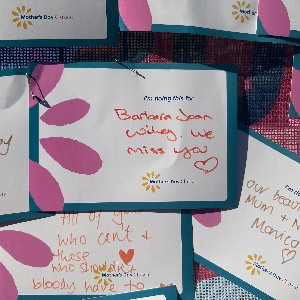 Mother's Day Classic
Mother's Day
I'm doing this for
Barbara Joan
Wilkey. We
miss you ♡
Mother's Day Classic
All of you
who can't +
those
who shouldn't
bloody have to
I'm
our beau
Mum + N
Monica
Mother's Day Classic
Mother's Day Classic